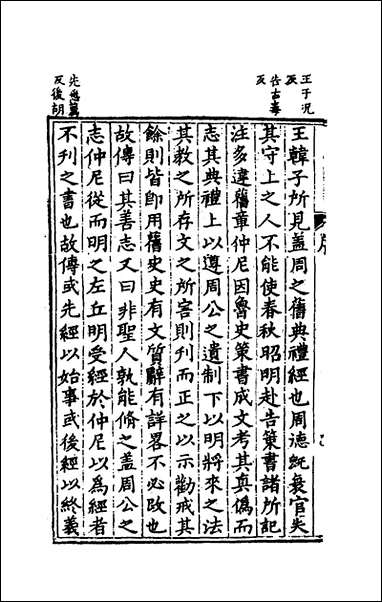 王于況
反
告古毒
反
先悉薦
反後胡
序
王韓子所見蓋周之舊典禮經也周德既衰官失
其守上之人不能使春秋昭明赴告策書諸所記
注多違舊章仲尼因魯史策書成文考其真偽而
志其典禮上以遵周公之遺制下以明將來之法
其教之所存文之所害則刊而正之以示勸戒其
餘則皆即用舊史史有文質辭有詳畧不必改也
故傳曰其善志又曰非聖人孰能脩之蓋周公之
志仲尼從而明之左丘明受經於仲尼以為經者
不刊之書也故傳或先經以始事或後經以終義